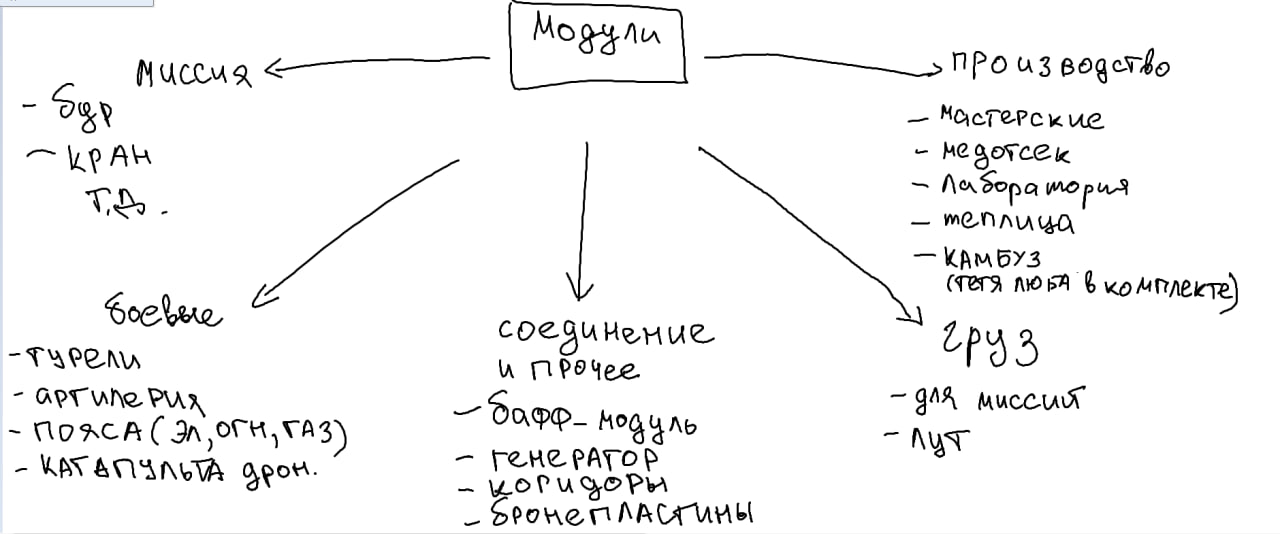 Модули
миссия
- бур
- КРАН
Т.Д.
производство
- мастерские
- медотсек
- лаборатория
- теплица
- КАМБУЗ
(тетя ЛЮБА в комплекте)
боевые
- турели
- артилерия
- ПОЯСА (ЭЛ, ОГН, ГАЗ)
- КАТАПУЛЬТА дрон.
соединение
и прочее
- бафф-модуль
- генератор
- коридоры
- бронепластины
груз
- для миссий
- лут